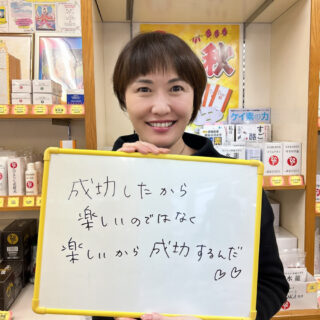 秋
ケイ素の力
成功したから
楽しいのではなく
楽しいから成功するんだ
♡♡